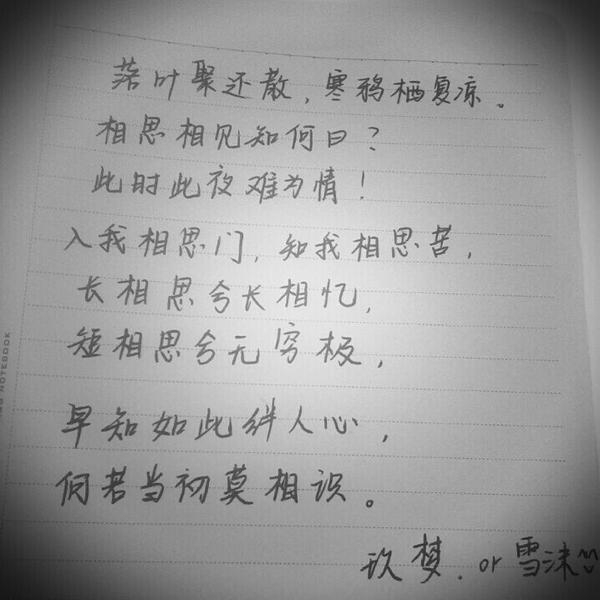 落叶聚还散，寒鸦栖复凉。
相思相见知何日？
此时此夜难为情！
入我相思门，知我相思苦，
长相思兮长相忆，
短相思兮无穷极，
早知如此绊人心，
何若当初莫相识。
玖梦. or 雪沫
NOTEBOOK